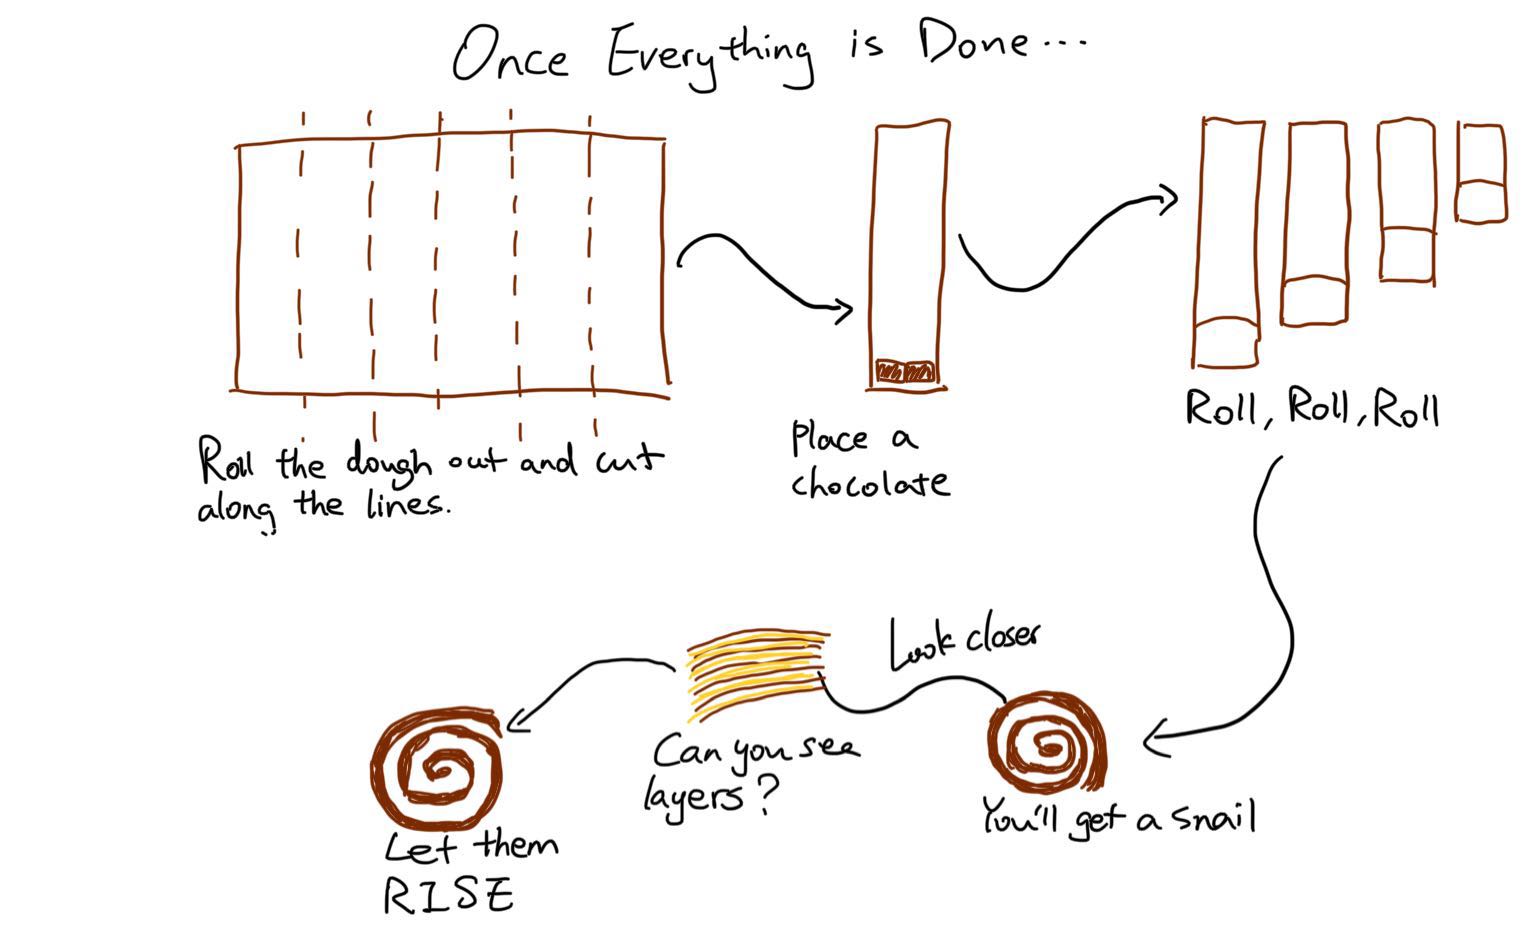 Once Everything is Done...
Roll the dough out and cut
along the lines.
Place a
chocolate
Roll, Roll, Roll
Look closer
You'll get a snail
Can you see
layers?
Let them
RISE